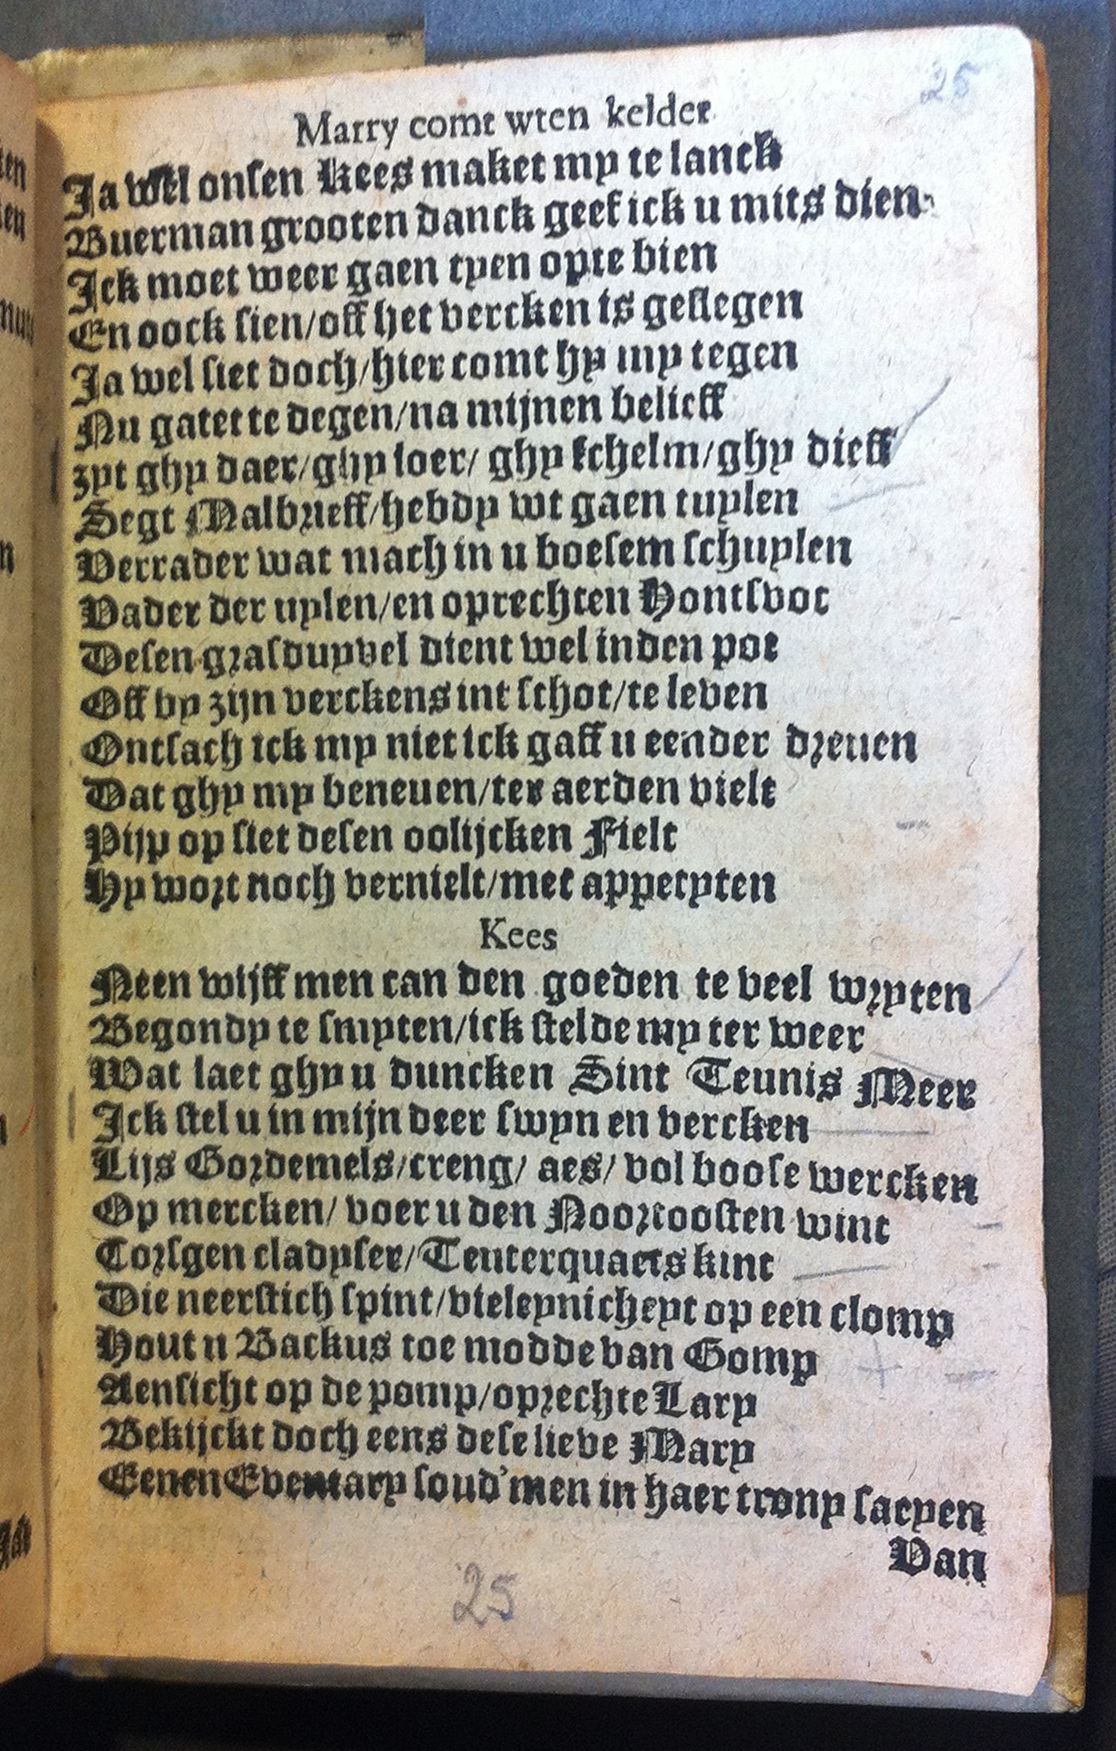 25
Marry comt wten kelder
Ja wel onsen Kees maket my te lanck
Buerman grooten danck geef ick u mits dien
Ick moet weer gaen tyen opte bien
En oock sien/off het vercken is geslegen
Ja wel siet doch/hier comt hy my tegen
Nu gatet te degen/na mijnen belieff
zyt ghy daer/ghy loer/ ghy schelm/ghy dieff
Segt Malbrieff/hebdy wt gaen tuylen
Verrader wat mach in u boesem schuylen
Vader der uylen/en oprechten Hontsvot
Desen grasduyvel dient wel inden pot
Off by zijn verckens int schot/te leven
Ontsach ick my niet ick gaff u eender dreuen
Dat ghy my beneuen/ter aerden vielt
Pijp op siet desen oolijcken Fielt
Hy wort noch vernielt/met appetyten
Kees
Neen wijff men can den goeden te veel wryten
Begondy te smyten/ick stelde my ter weer
Wat laet ghy u duncken Sint Teunis Meer
Ick stel u in mijn deer swyn en vercken
Lijs Gordemels/creng/ aes/ vol boose wercken
Op mercken/ voer u den Noortoosten wint
Torsgen cladyser/Teuterquaets kint
Die neerstich spint/vieleynicheyt op een clomp
Hout u Backus toe modde van Gomp
Aensicht op de pomp/oprechte Lary
Bekijckt doch eens dese lieve Mary
Eenen Eventary soud'men in haer trony saeyen
Van
25